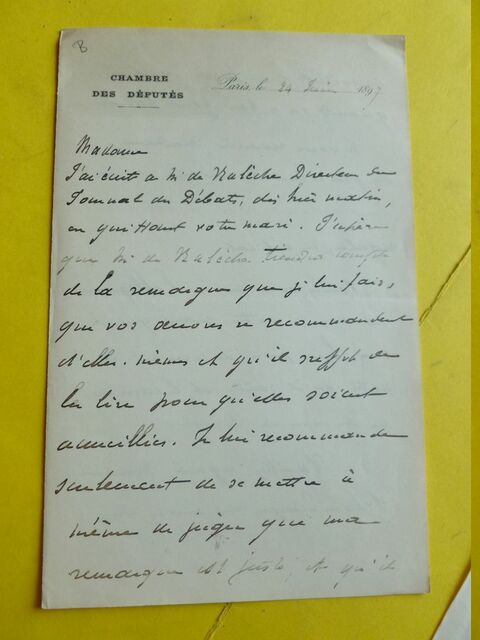 8
CHAMBRE
DES DÉPUTÉS
Paris, le 24 Juin 1897
Madame
J'ai écrit a M. de Nalèche Directeur du
Journal des Débats, dès hier matin,
en qui votre mari. J'espère
que M. de Nalèche tiendra compte
de la remarque que je lui fais,
que vos œuvres se recommandent
d'elles-mêmes et qu'il suffit de
les lire pour qu'elles soient
accueillies. Je lui recommande
seulement de se mettre à
même de juger que ma
remarque est juste, et qu'il